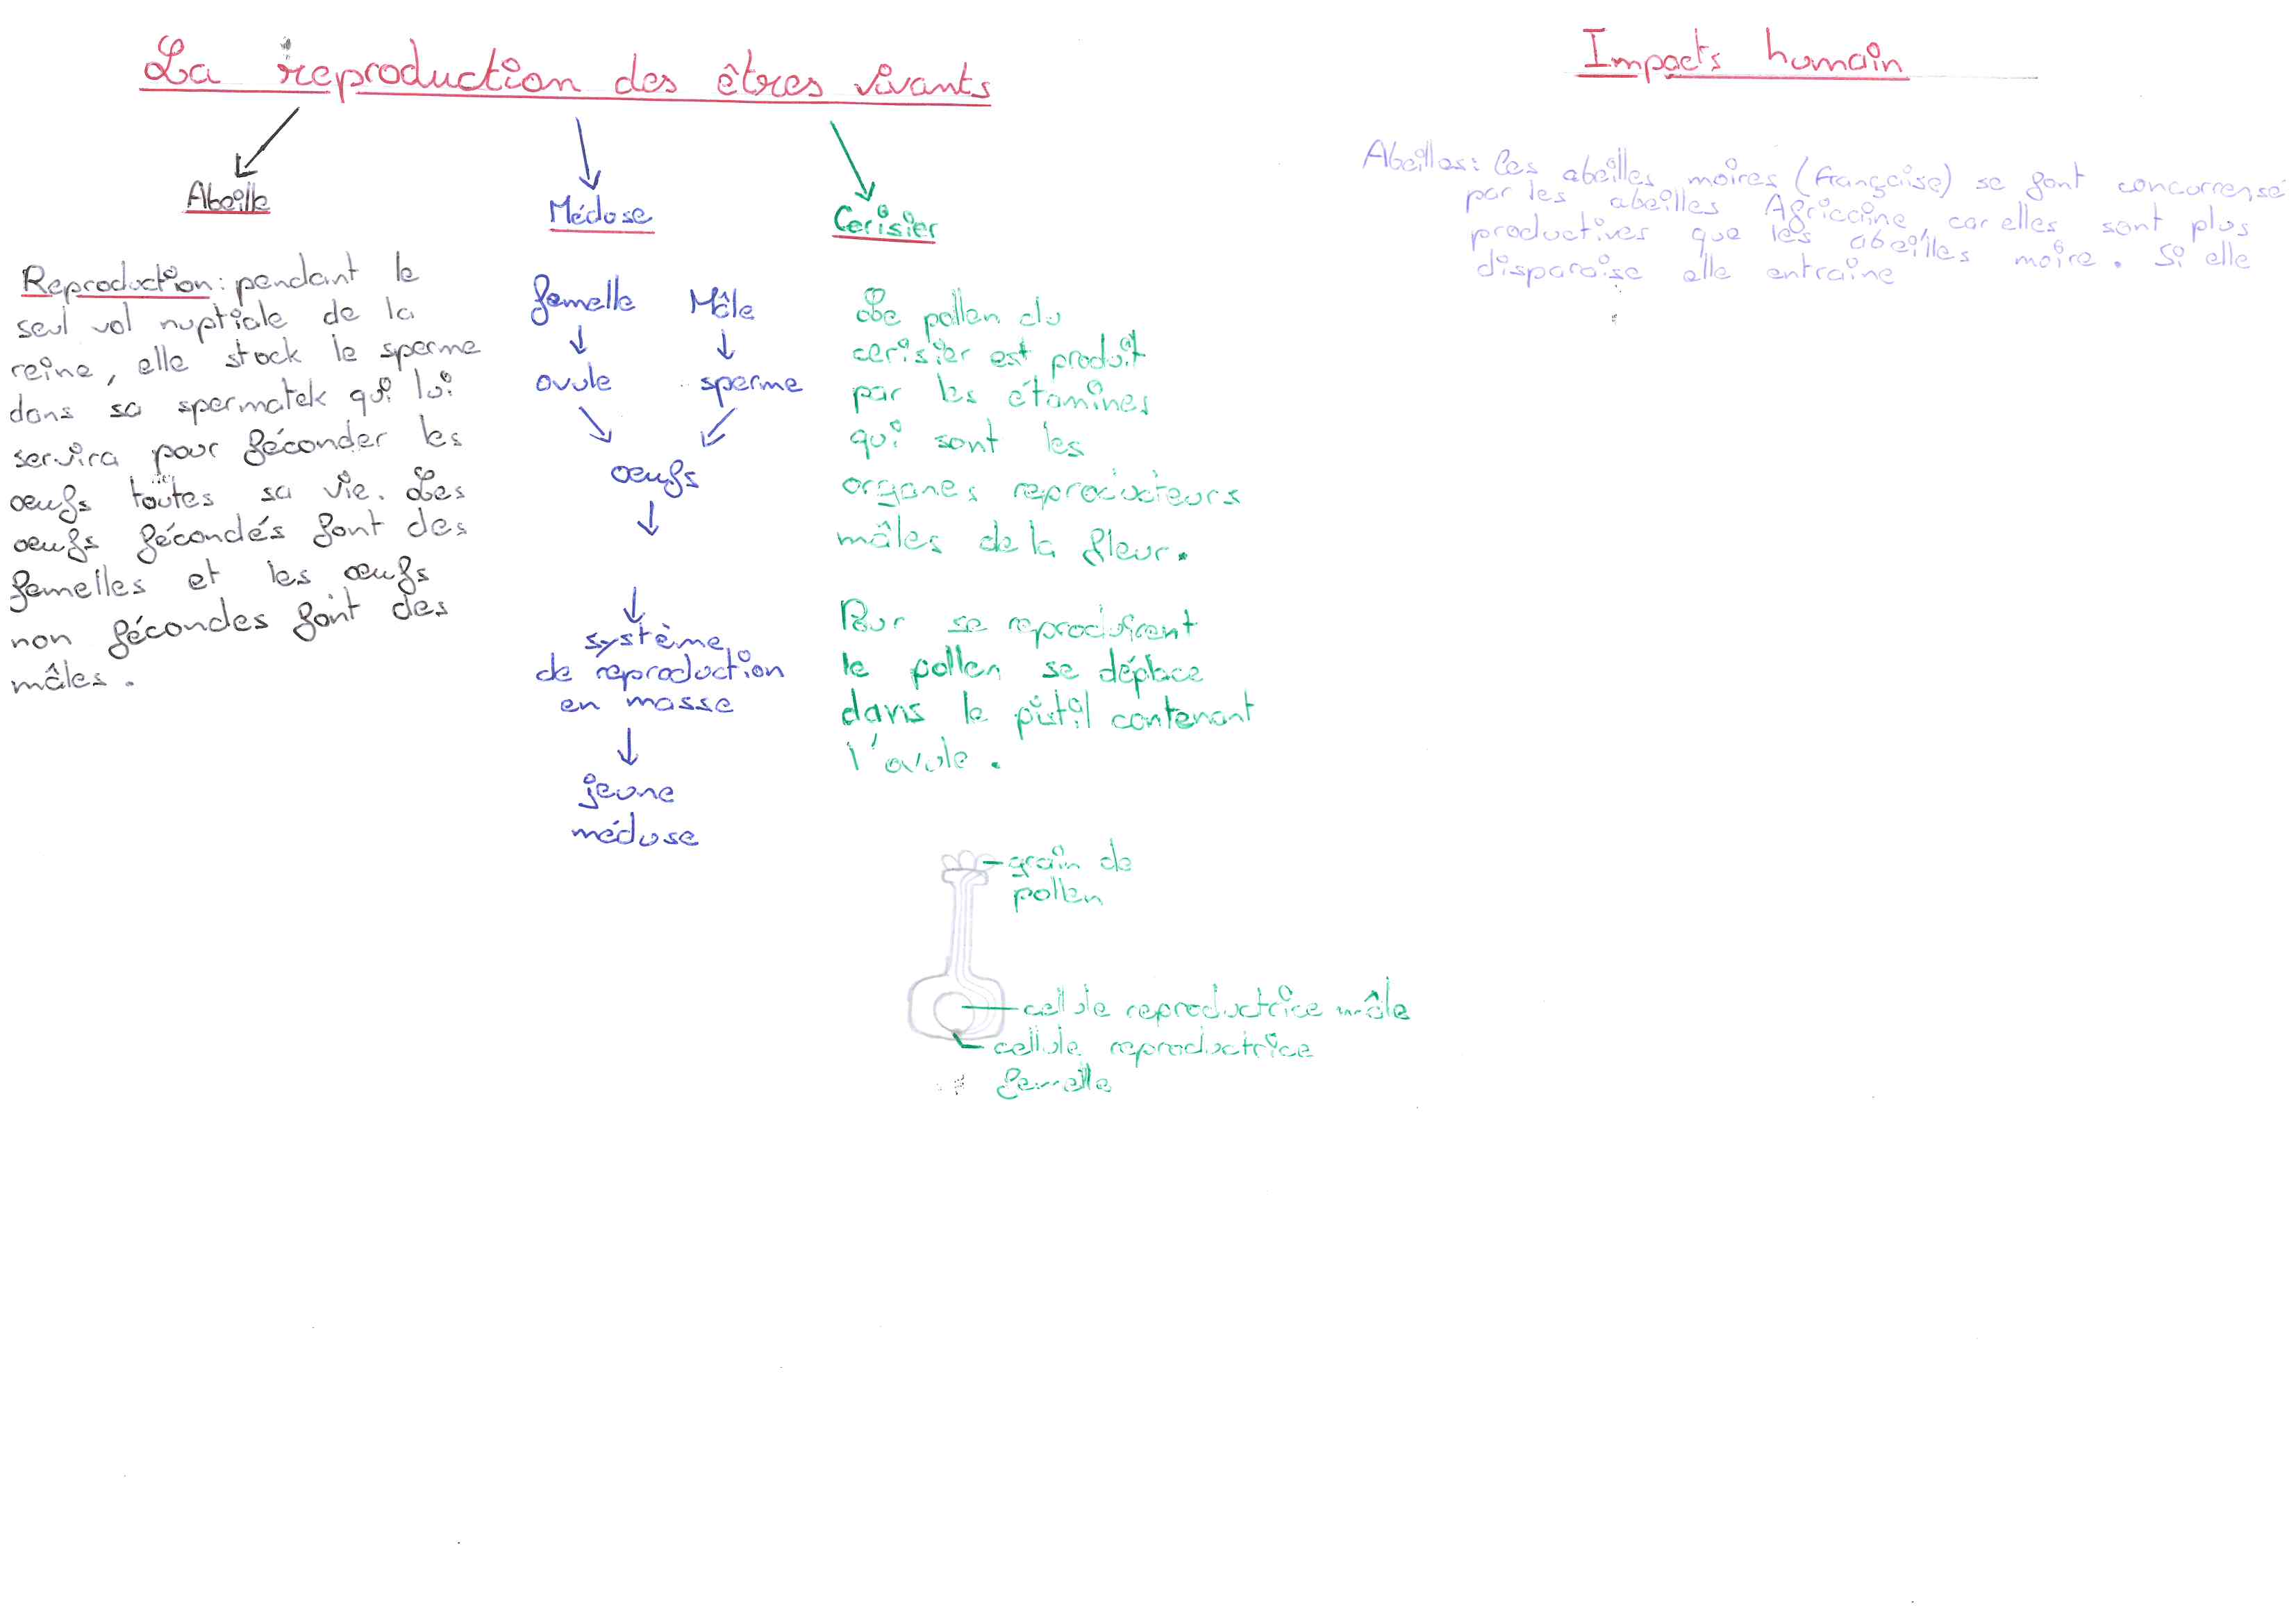 La reproduction des êtres vivants
Abeille
Reproduction : pendant le
seul vol nuptiale de la
reine, elle stock le sperme
dans sa spermatek qui lui
servira pour féconder les
oeufs toutes sa vie. Les
oeufs fécondés font des
femelles et les oeufs
non fécondes font des
mâles.
Méduse
femelle Mâle
ovule sperme
oeufs
système
de reproduction
en masse
jeune
méduse
Cerisier
Le pollen du
cerisier est produit
par les étamines
qui sont les
organes reproducteurs
mâles de la fleur.
Pour se reproduirent
le pollen se déplace
dans le pistil contenant
l'ovule.
grain de
pollen
cellule reproductrice mâle
cellule reproductrice
femelle
Impacts humain
Abeilles : les abeilles noires (française) se font concurrensé
par les abeilles Africaine, car elles sont plus
productives que les abeilles noire. Si elle
disparaise elle entraine